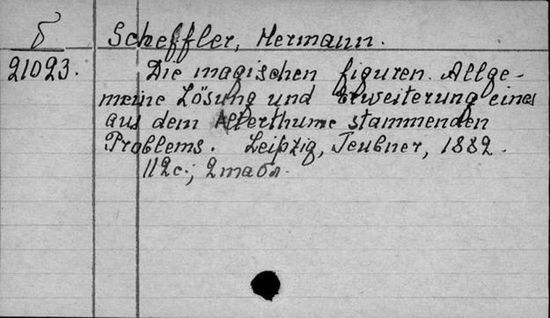 б Scheffler, Hermann.
21023. Die magischen figuren. Allge-
meine Lösung und Erweiterung eines
aus dem Alterthume stammenden
Problems. Leipzig, Teubner, 1882.
112 с.; 2 табл.